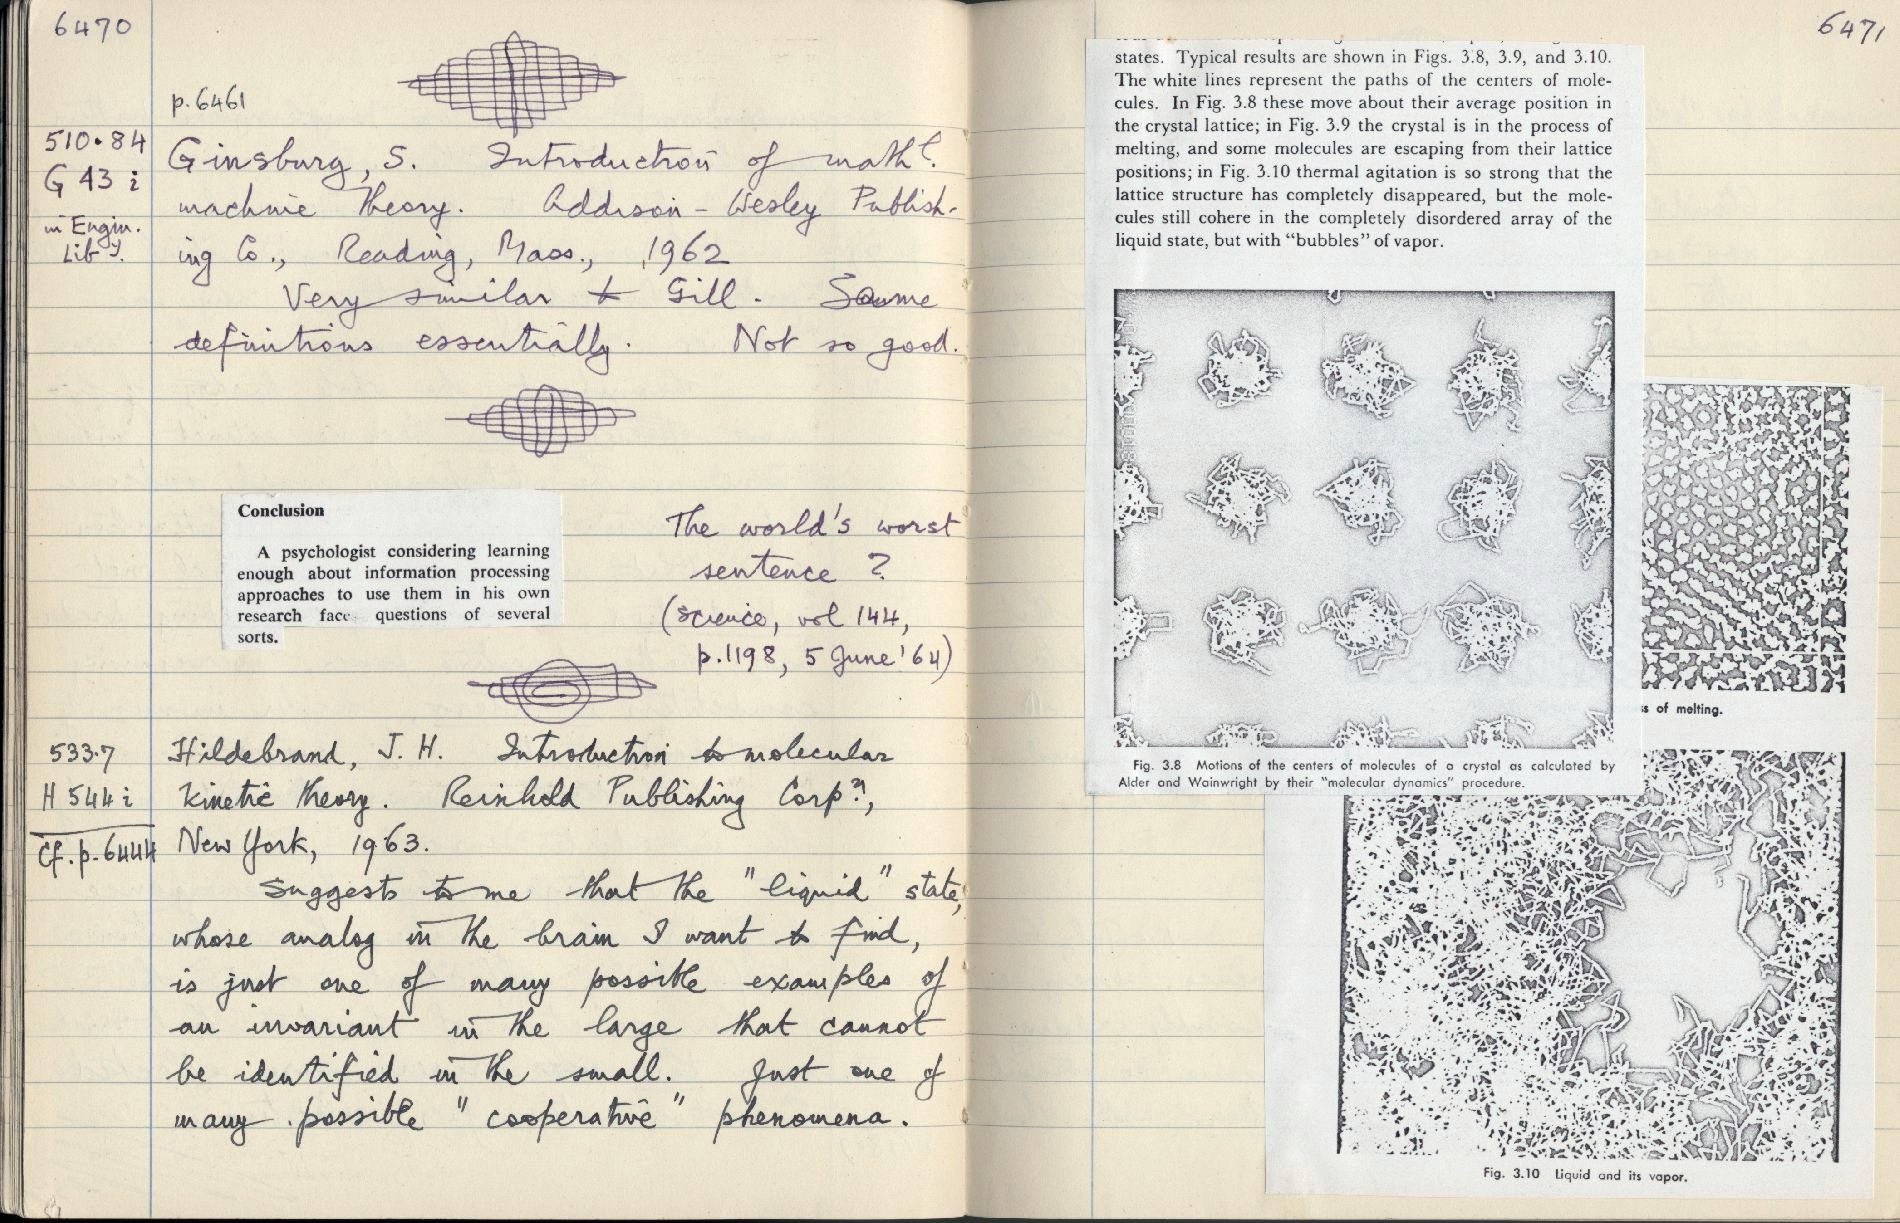 6470
p. 6461
510.84
G 43 i
in Engin.
Liby.
Ginsburg, S. Introduction of mathl.
machine theory. Addison-Wesley Publish-
ing Co., Reading, Mass., 1962
Very similar to Gill. Same
definitions essentially. Not so good.
Conclusion
A psychologist considering learning
enough about information processing
approaches to use them in his own
research face questions of several
sorts.
The world's worst
sentence ?
(Science, vol 144,
p. 1198, 5 June '64)
533.7
H 544 i
Cf. p. 6444
Hildebrand, J. H. Introduction to molecular
kinetic theory. Reinhold Publishing Corpn.,
New York, 1963.
Suggests to me that the "liquid" state,
whose analog in the brain I want to find,
is just one of many possible examples of
an invariant in the large that cannot
be identified in the small. Just one of
many possible "cooperative" phenomena.
6471
states. Typical results are shown in Figs. 3.8, 3.9, and 3.10.
The white lines represent the paths of the centers of mole-
cules. In Fig. 3.8 these move about their average position in
the crystal lattice; in Fig. 3.9 the crystal is in the process of
melting, and some molecules are escaping from their lattice
positions; in Fig. 3.10 thermal agitation is so strong that the
lattice structure has completely disappeared, but the mole-
cules still cohere in the completely disordered array of the
liquid state, but with "bubbles" of vapor.
Fig. 3.8 Motions of the centers of molecules of a crystal as calculated by
Alder and Wainwright by their "molecular dynamics" procedure.
of melting.
Fig. 3.10 Liquid and its vapor.